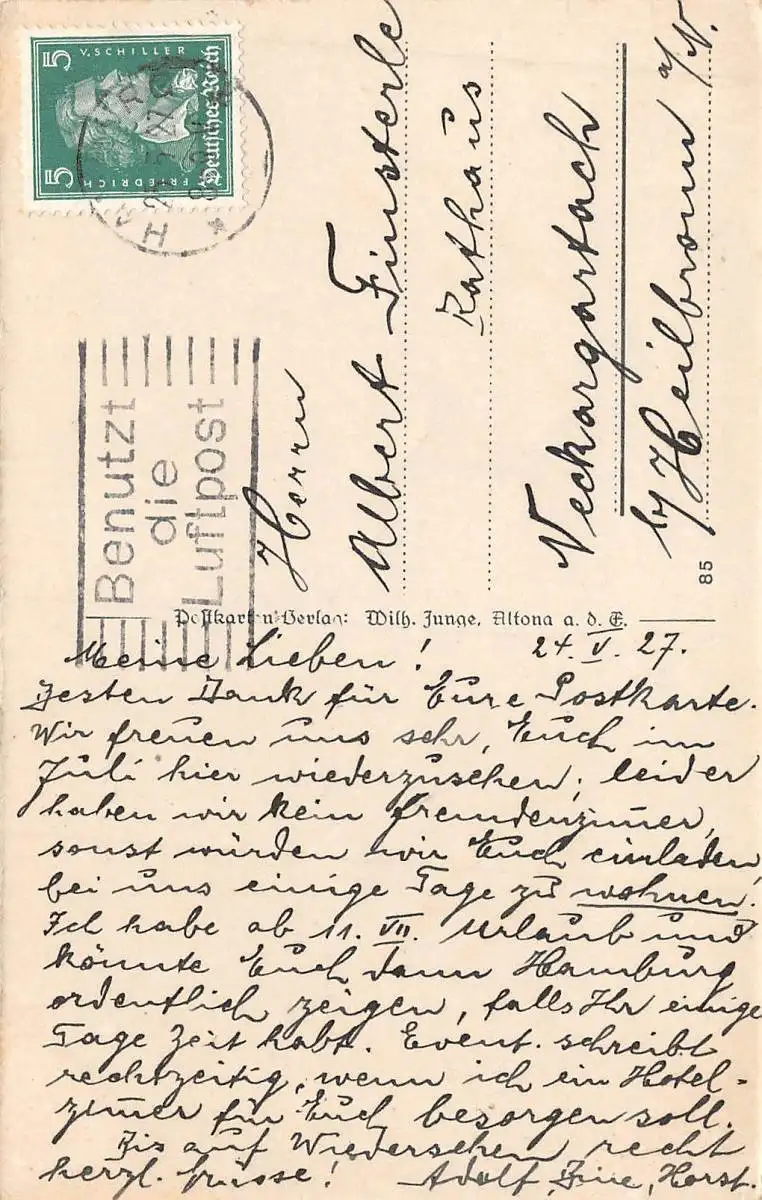 5 V. SCHILLER
5 FRIEDRICH
Deutsches Reich
Benutzt
die
Luftpost
Herrn
Albert Finsterle
Rathaus
Neckargartach
b/ Heilbronn a/N.
85
Postkarten-Verlag: Wilh. Junge, Altona a. d. E.
Meine Lieben! 24. V. 27.
Besten Dank für Eure Postkarte.
Wir freuen uns sehr, Euch im
Juli hier wiederzusehen; leider
haben wir kein Fremdenzimmer,
sonst würden wir Euch einladen,
bei uns einige Tage zu wohnen.
Ich habe ab 11. VII. Urlaub und
könnte Euch dann Hamburg
ordentlich zeigen, falls Ihr einige
Tage Zeit habt. Event. schreibt
rechtzeitig, wenn ich ein Hotel-
zimmer für Euch besorgen soll.
Bis auf Wiedersehen recht
herzl. Grüsse! Adolf, Horst.